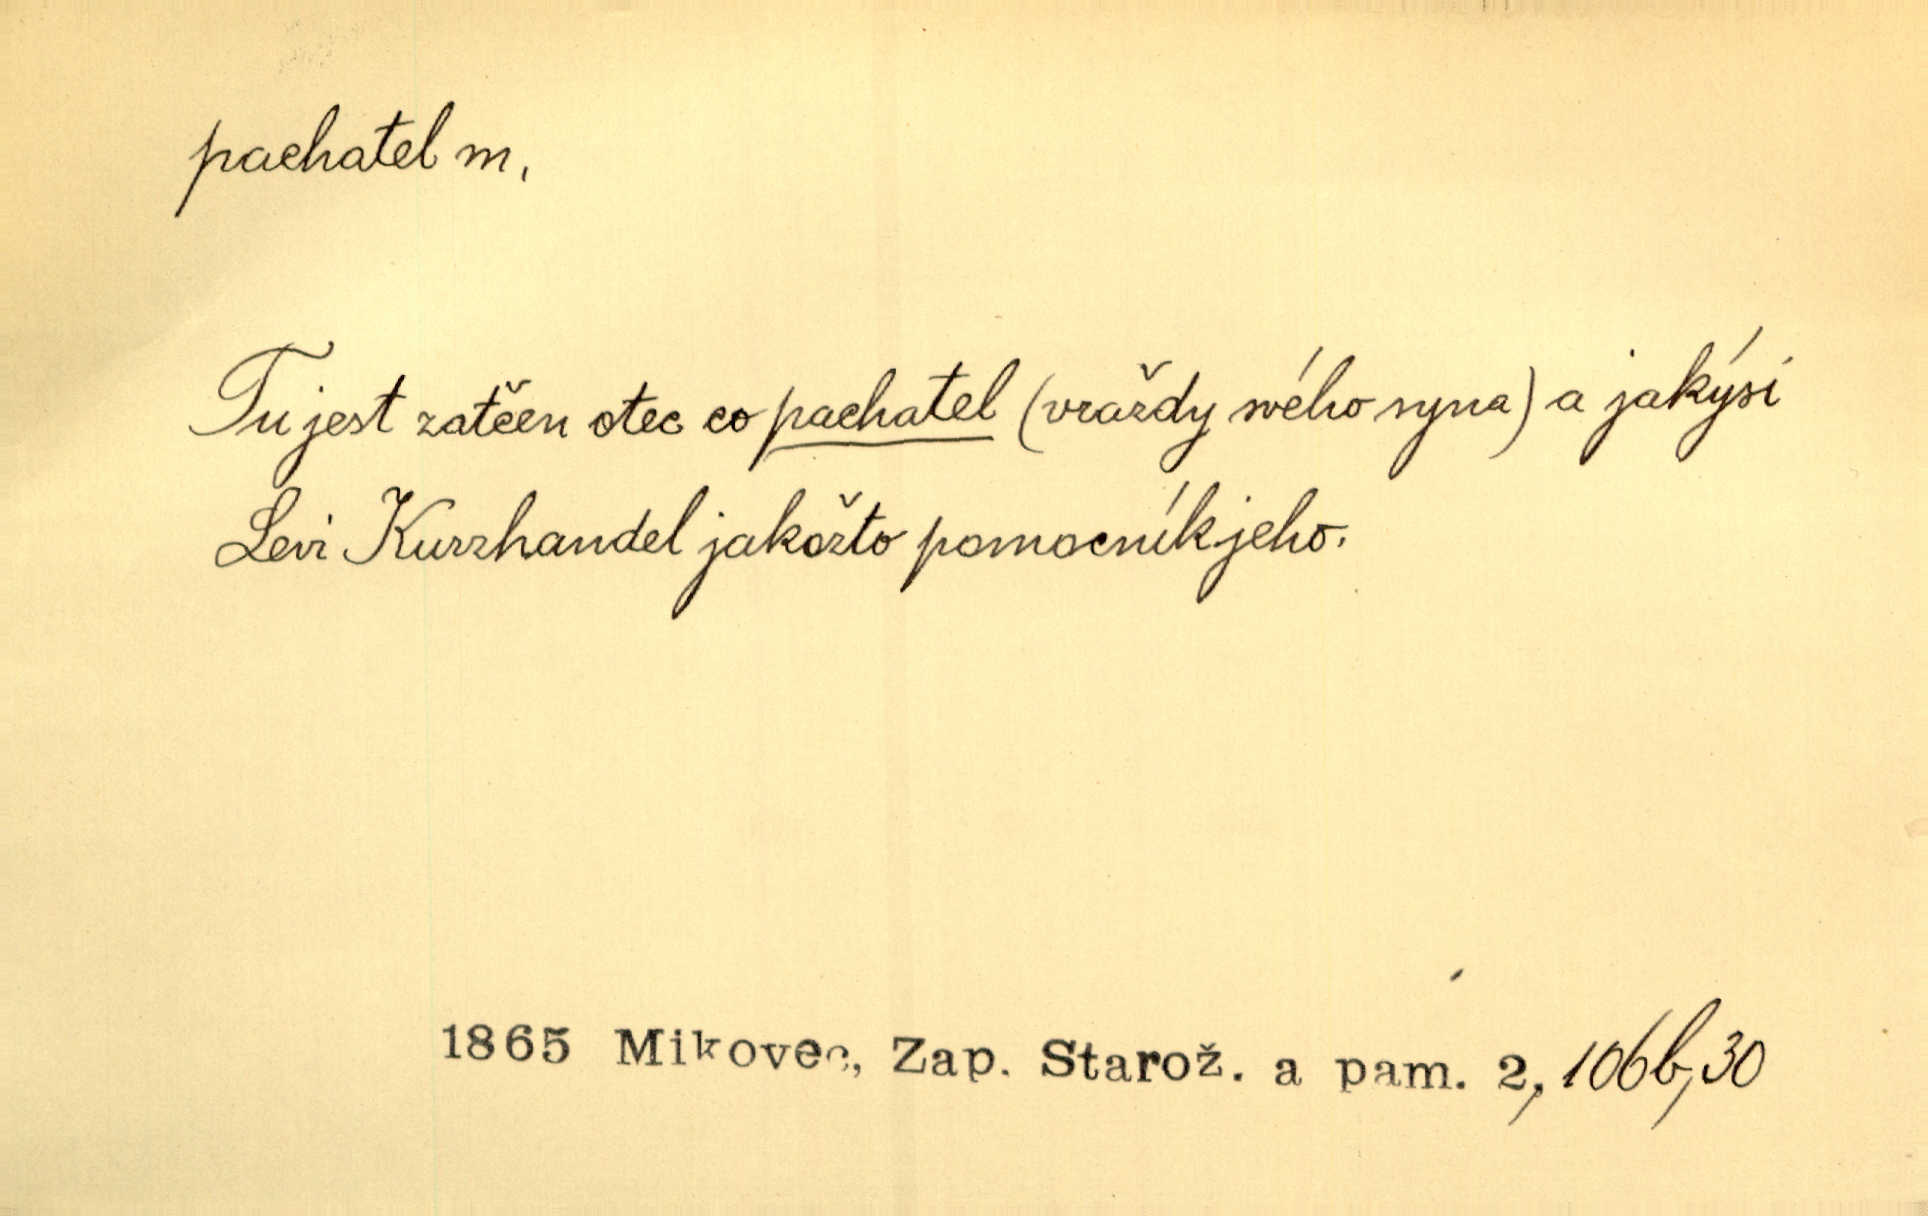 pachatel m.
Tu jest zatčen otec co pachatel (vraždy svého syna) a jakýsi
Levi Kurzhandel jakožto pomocník jeho.
1865 Mikovec, Zap. Starož. a pam. 2, 106b,30